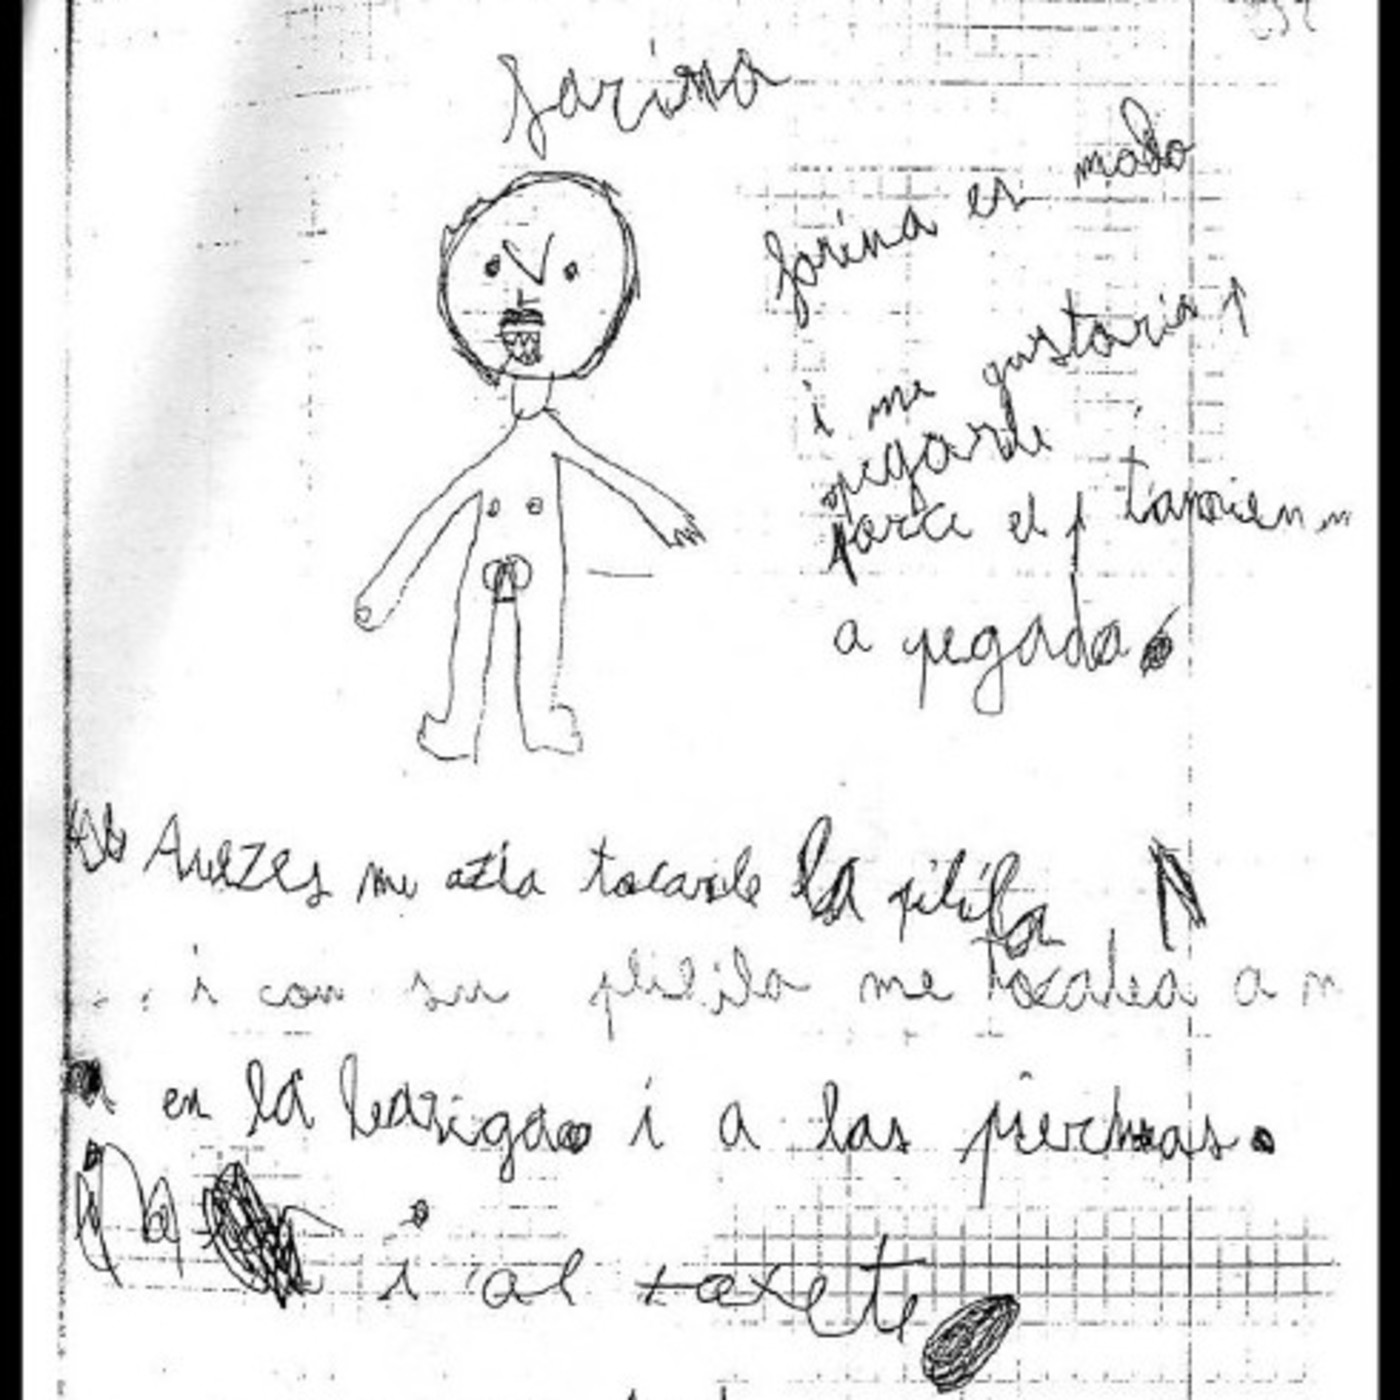 farina
farina es malo
i me gustaria
pegarle
porce el tanvien
a pegado.
Avezes me azia tocarle la pilila
i con su plilila me tocaba a m
en la barriga i a las piernas.
i al